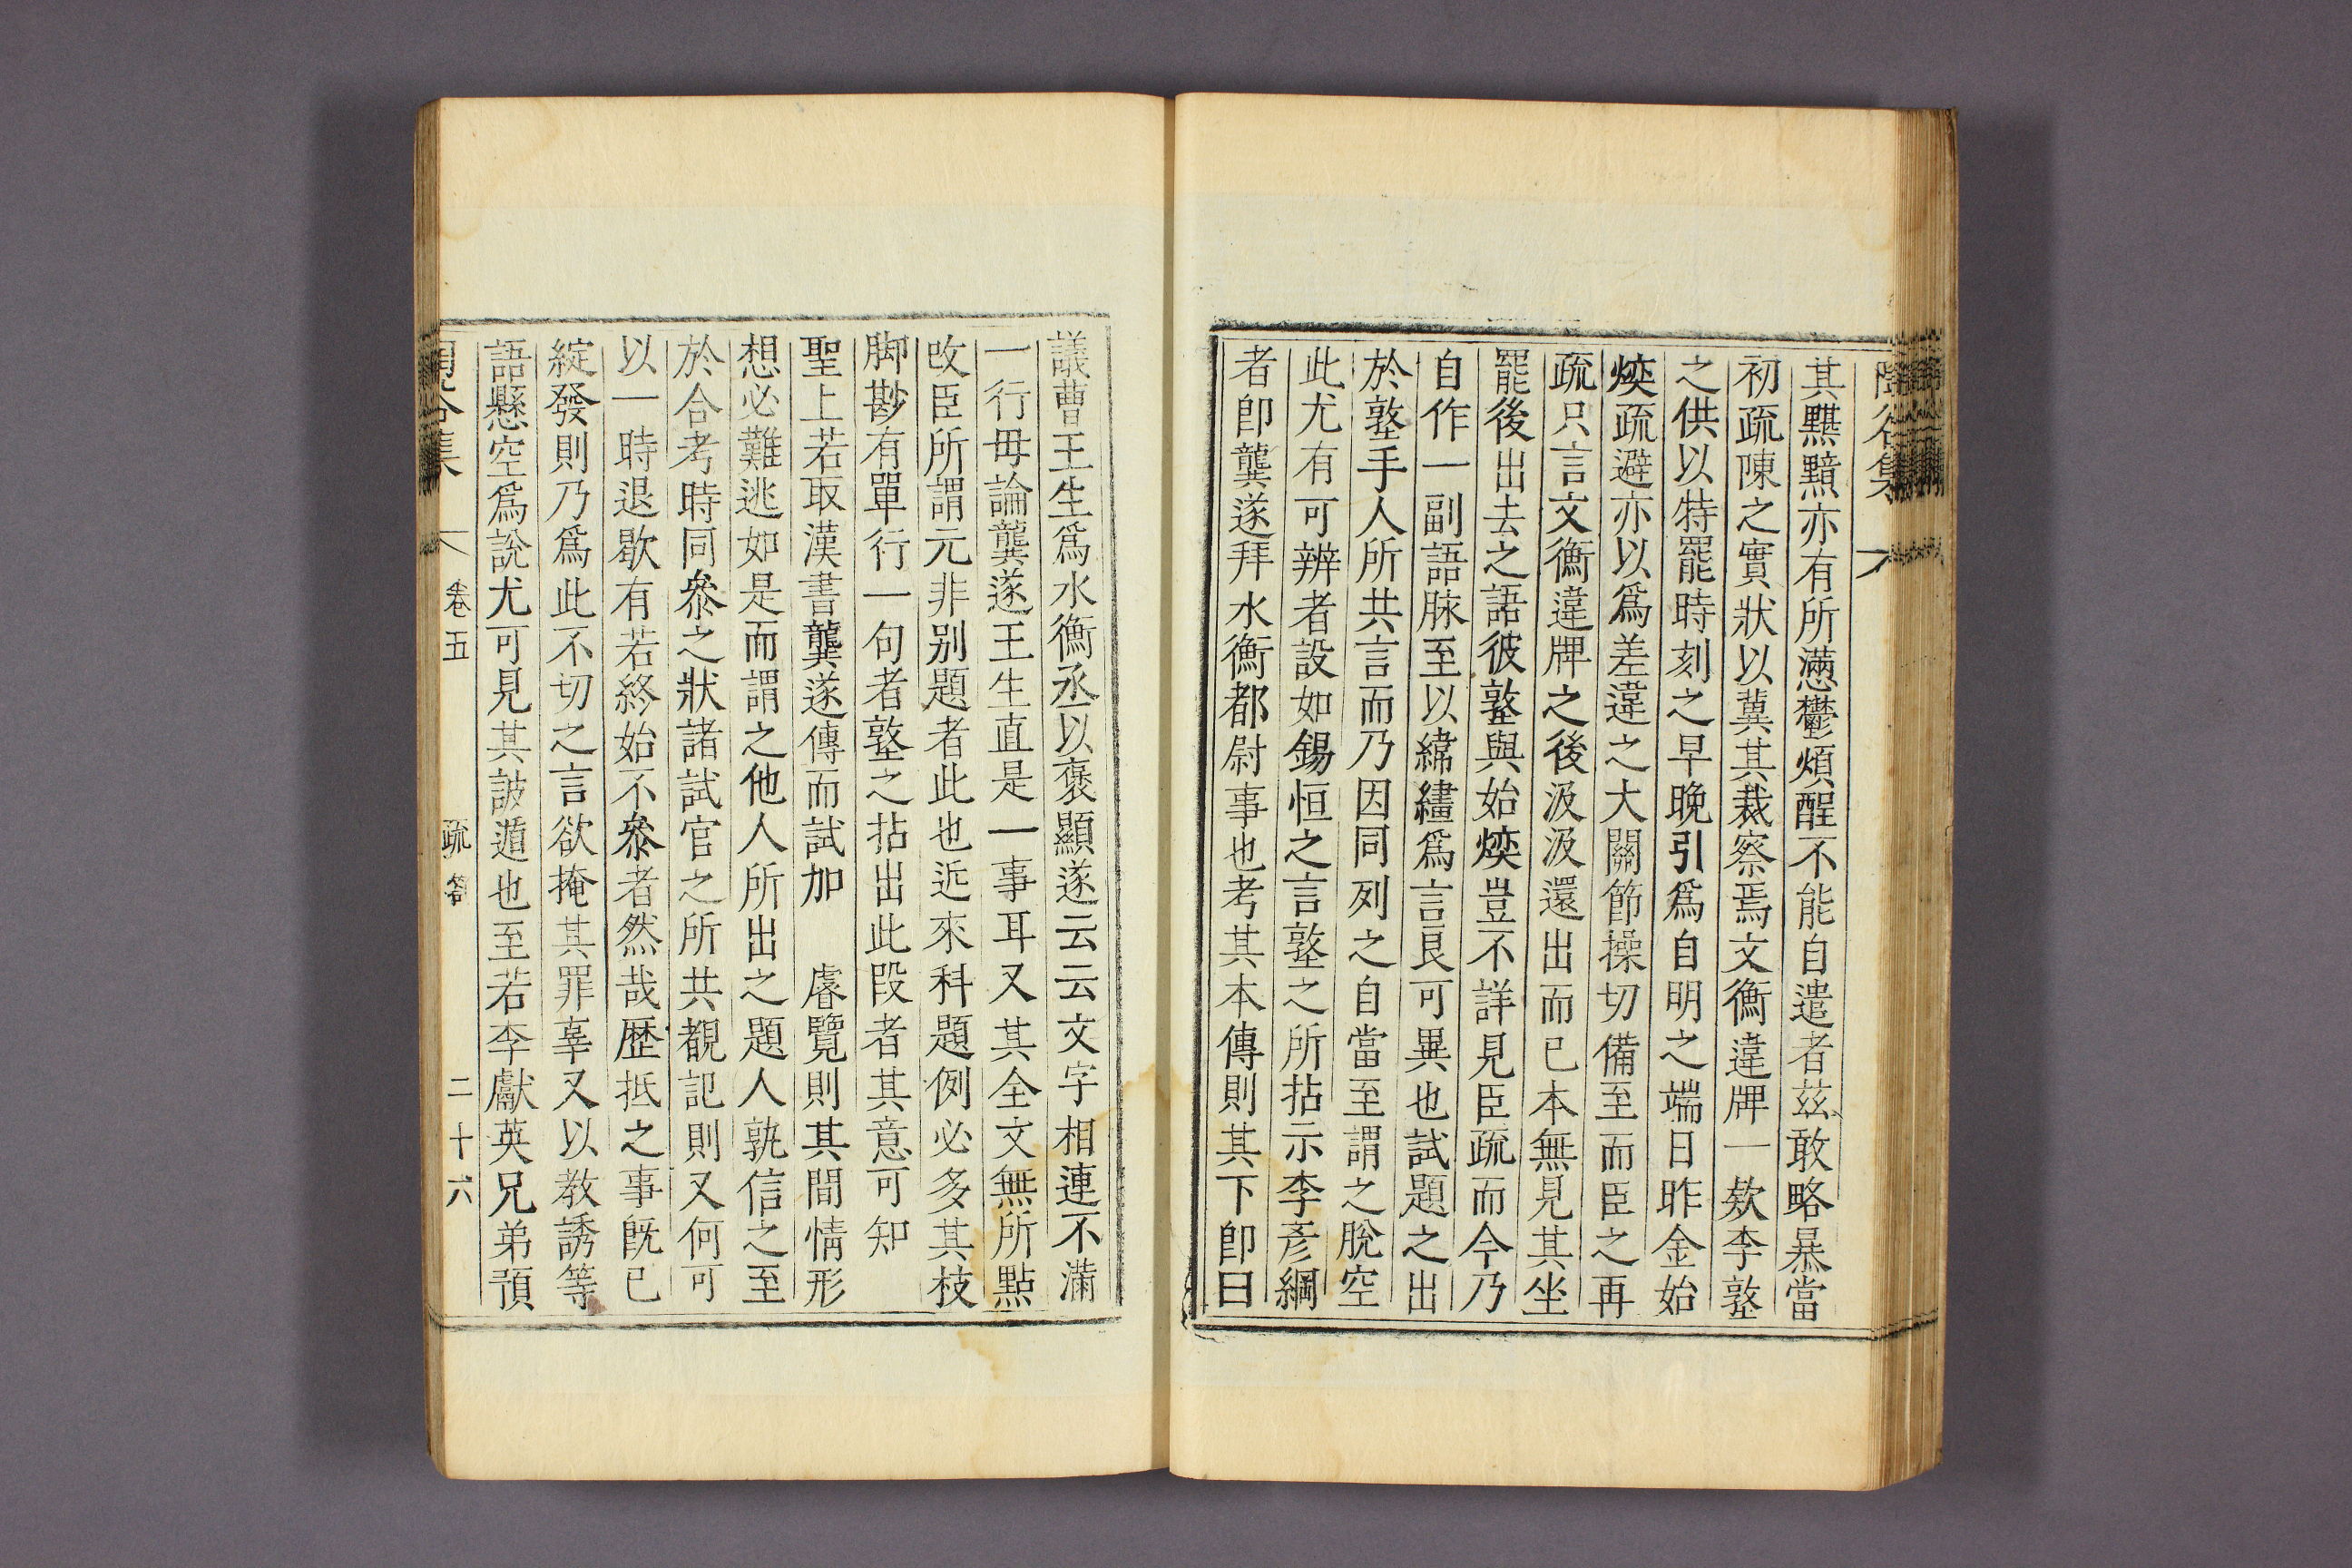 其黮黯亦有所懣鬱煩酲不能自遣者玆敢略暴當
初疏陳之實狀以冀其裁察焉文衡違牌一欵李墪
之供以特罷時刻之早晚引爲自明之端日昨金始
煐疏避亦以爲差違之大關節操切備至而臣之再
疏只言文衡違牌之後汲汲還出而已本無見其坐
罷後出去之語彼墪與始煐豈不詳見臣疏而今乃
自作一副語脉至以緯繣爲言良可異也試題之出
於墪手人所共言而乃因同列之自當至謂之脫空
此尤有可辨者設如錫恒之言墪之所拈示李彦綱
者卽龔遂拜水衡都尉事也考其本傳則其下卽曰
議曹王生爲水衡丞以褒顯遂云云文字相連不滿
一行毋論龔遂王生直是一事耳又其全文無所點
改臣所謂元非別題者此也近來科題例必多其枝
脚尠有單行一句者墪之拈出此段者其意可知
聖上若取漢書龔遂傳而試加　睿覽則其間情形
想必難逃如是而謂之他人所出之題人孰信之至
於合考時同叅之狀諸試官之所共覩記則又何可
以一時退歇有若終始不叅者然哉歷抵之事旣已
綻發則乃爲此不切之言欲掩其罪辜又以敎誘等
語懸空爲說尤可見其詖遁也至若李獻英兄弟預
谷集　卷五　疏箚　二十六